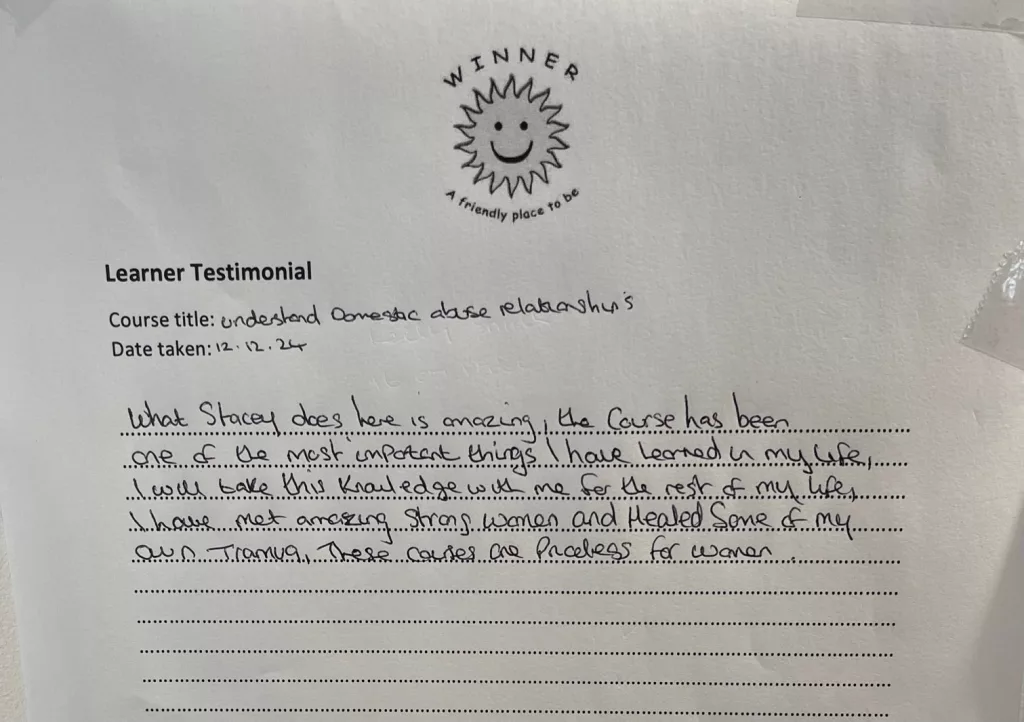 WINNER
A friendly place to be
Learner Testimonial
Course title: understand Domestic abuse relationship's
Date taken: 12.12.24
What Stacey does here is amazing, the Course has been
one of the most important things I have learned in my life,
I will take this Knowledge with me for the rest of my life,
I have met amazing strong women and Healed Some of my
own Trauma, These courses are Priceless for women.